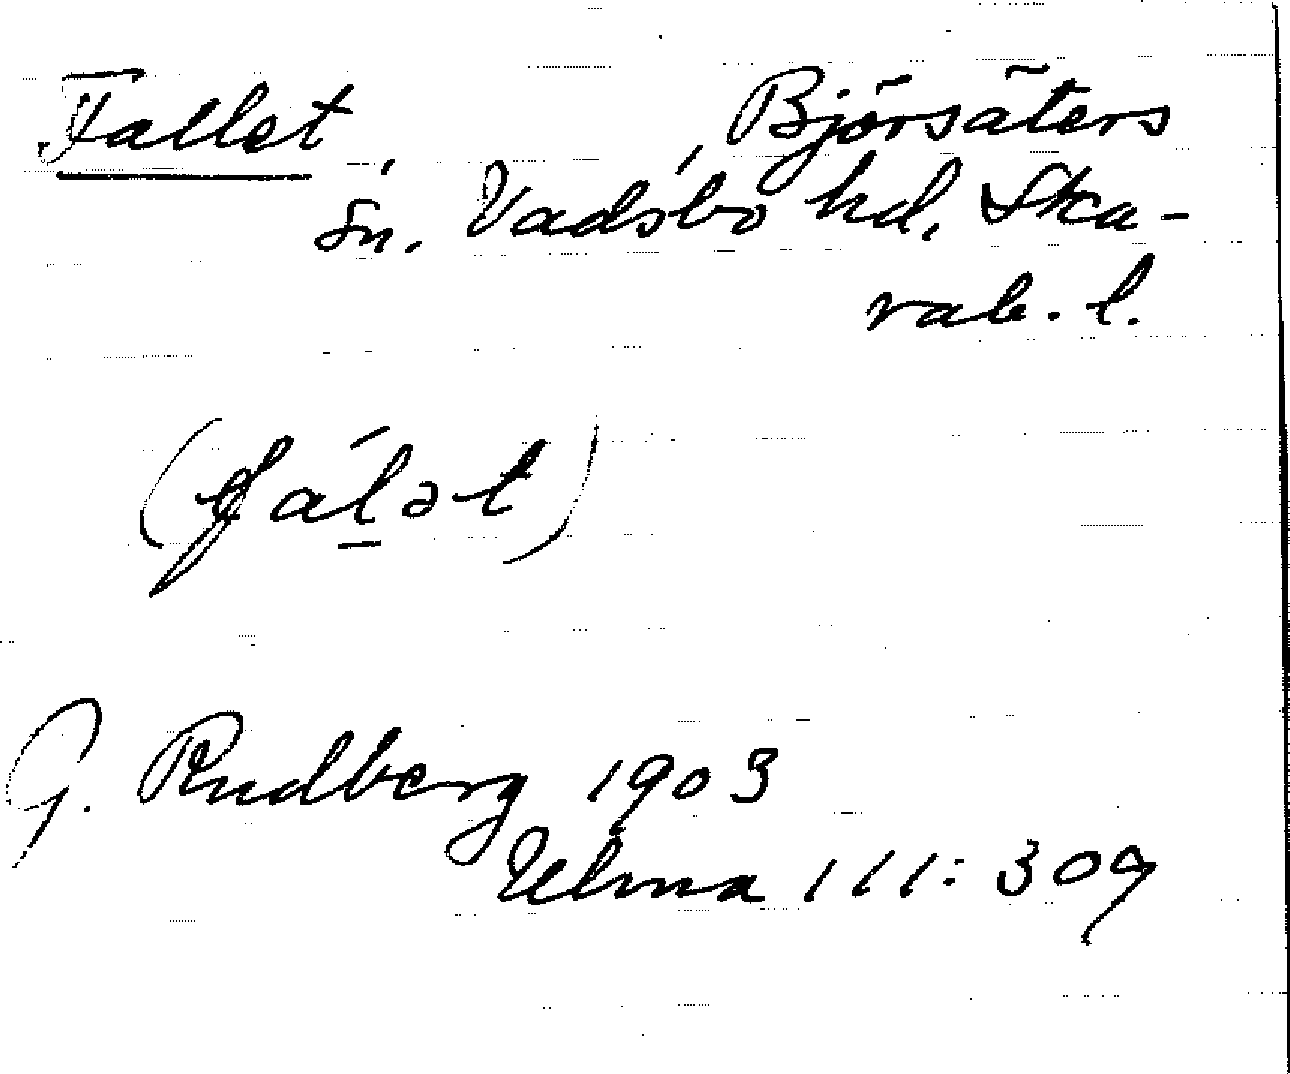 Fallet, Björsäters
sn. Vadsbo hd. Ska-
rab. l.
(fál̠ət)
G. Rudberg 1903
Ulma 111:309